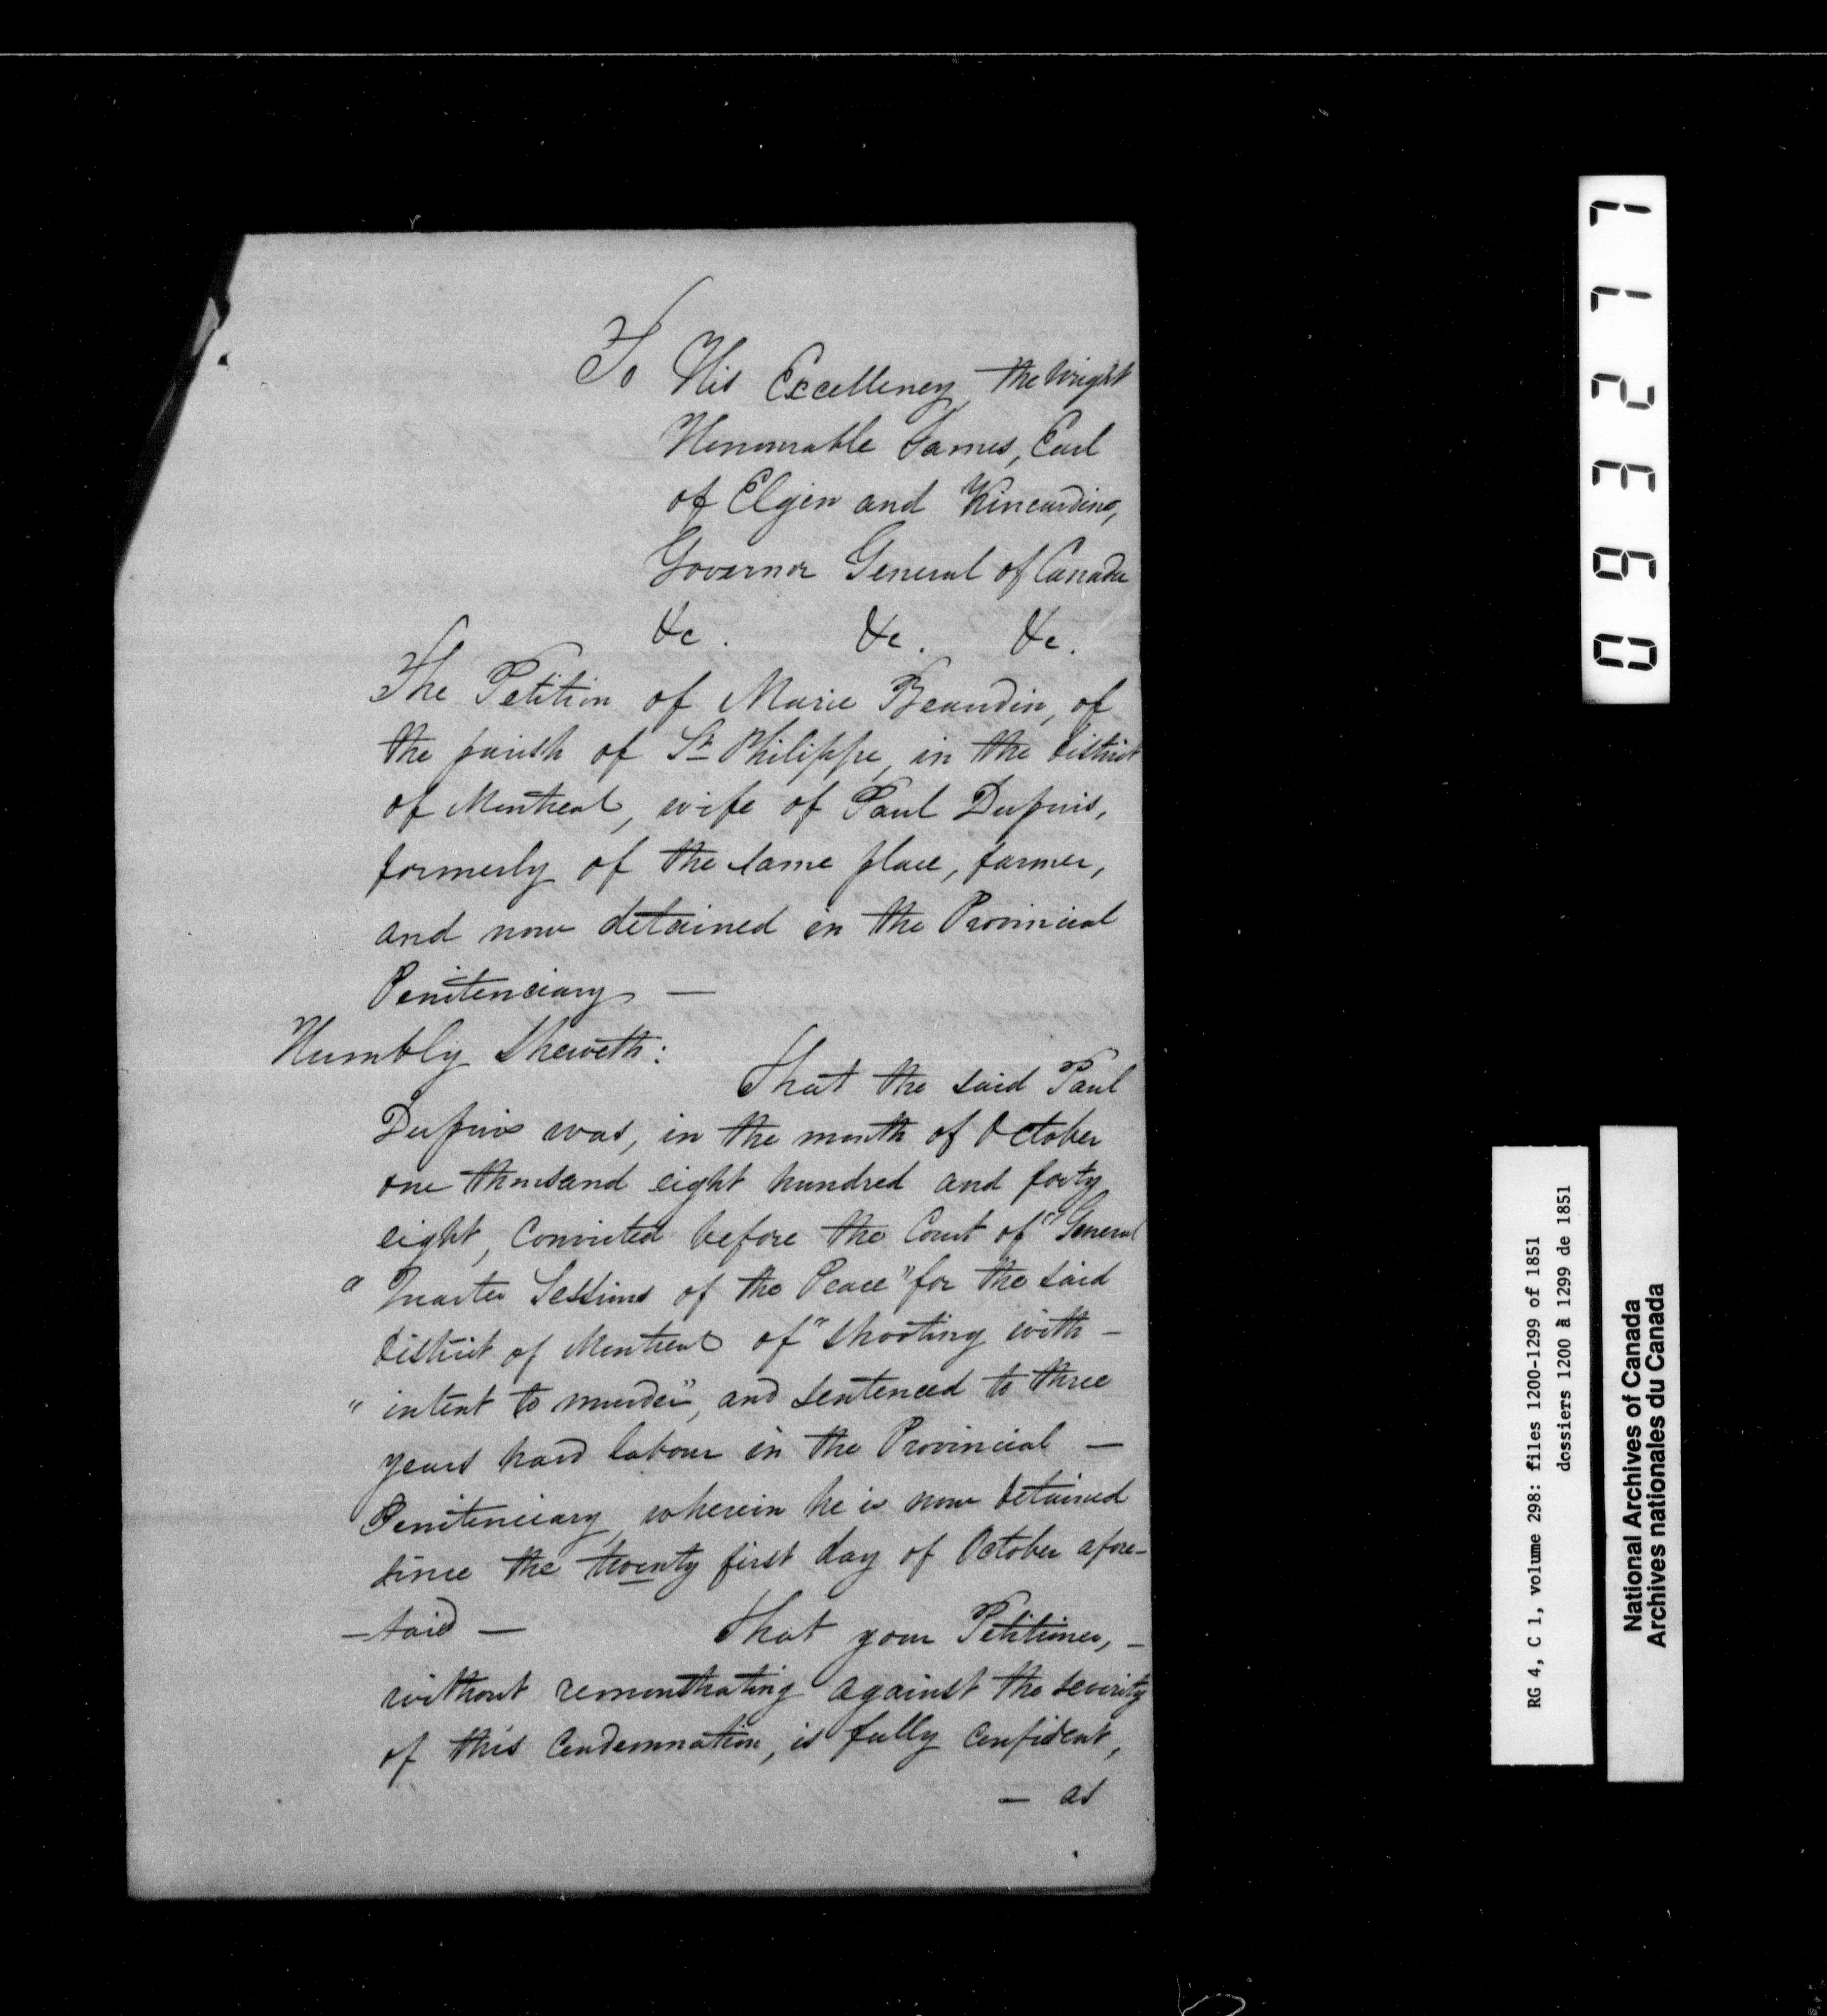 To His Excellency, the Wright
Honourable James, Earl
of Elgin and Kincardine,
Governor General of Canada
&c. &c. &c.
The Petition of Marie Beaudin, of
the parish of St Philippe, in the District
of Montreal, wife of Paul Dupuis,
formerly of the same place, farmer,
and now detained in the Provincial
Penitenciary —
Humbly Sheweth:
That the said Paul
Dupuis was, in the month of October
one thousand eight hundred and forty
eight, convicted before the Court of "General
" Quarter Sessions of the Peace" for the said
District of Montreal of "shooting with —
" intent to murder", and sentenced to three
years hard labour in the Provincial —
Penitenciary, wherein he is now detained
since the twenty first day of October afore-
— said — That your Petitioner, —
without remonstrating against the severity
of this Condemnation, is fully confident,
— as
093277
RG 4, C 1, volume 298: files 1200-1299 of 1851
dossiers 1200 à 1299 de 1851
National Archives of Canada
Archives nationales du Canada